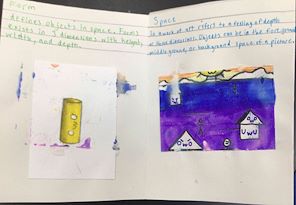 Form
defines objects in space. Forms
exists in 3 dimensions with height,
width, and depth.
Space
in works of art refers to a feeling of depth
or three dimensions. Objects can be in the foreground
middle ground, or background space of a picture.
OwO
UwU